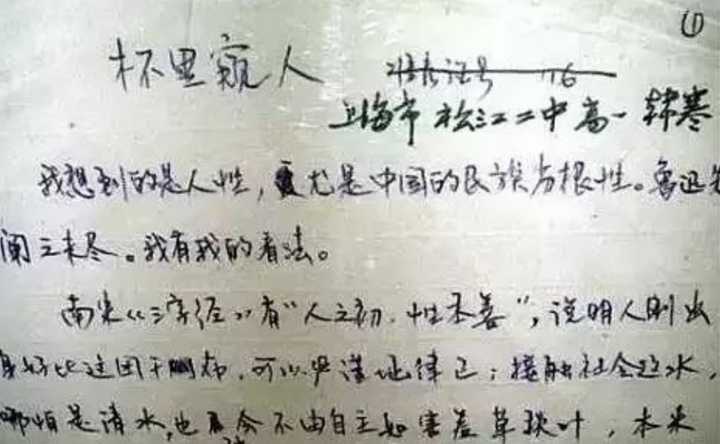 ①
杯里窥人 准考证号 116
上海市松江二中高一 韩寒
我想到的是人性,尤是中国的民族劣根性。鲁迅
阐之未尽。我有我的看法。
南宋《三字经》有“人之初,性本善”,说明人刚出
身好比这团干布,可以严谨地律己;接触社会这水,
哪怕是清水,也会不由自主如害羞草叶,本来